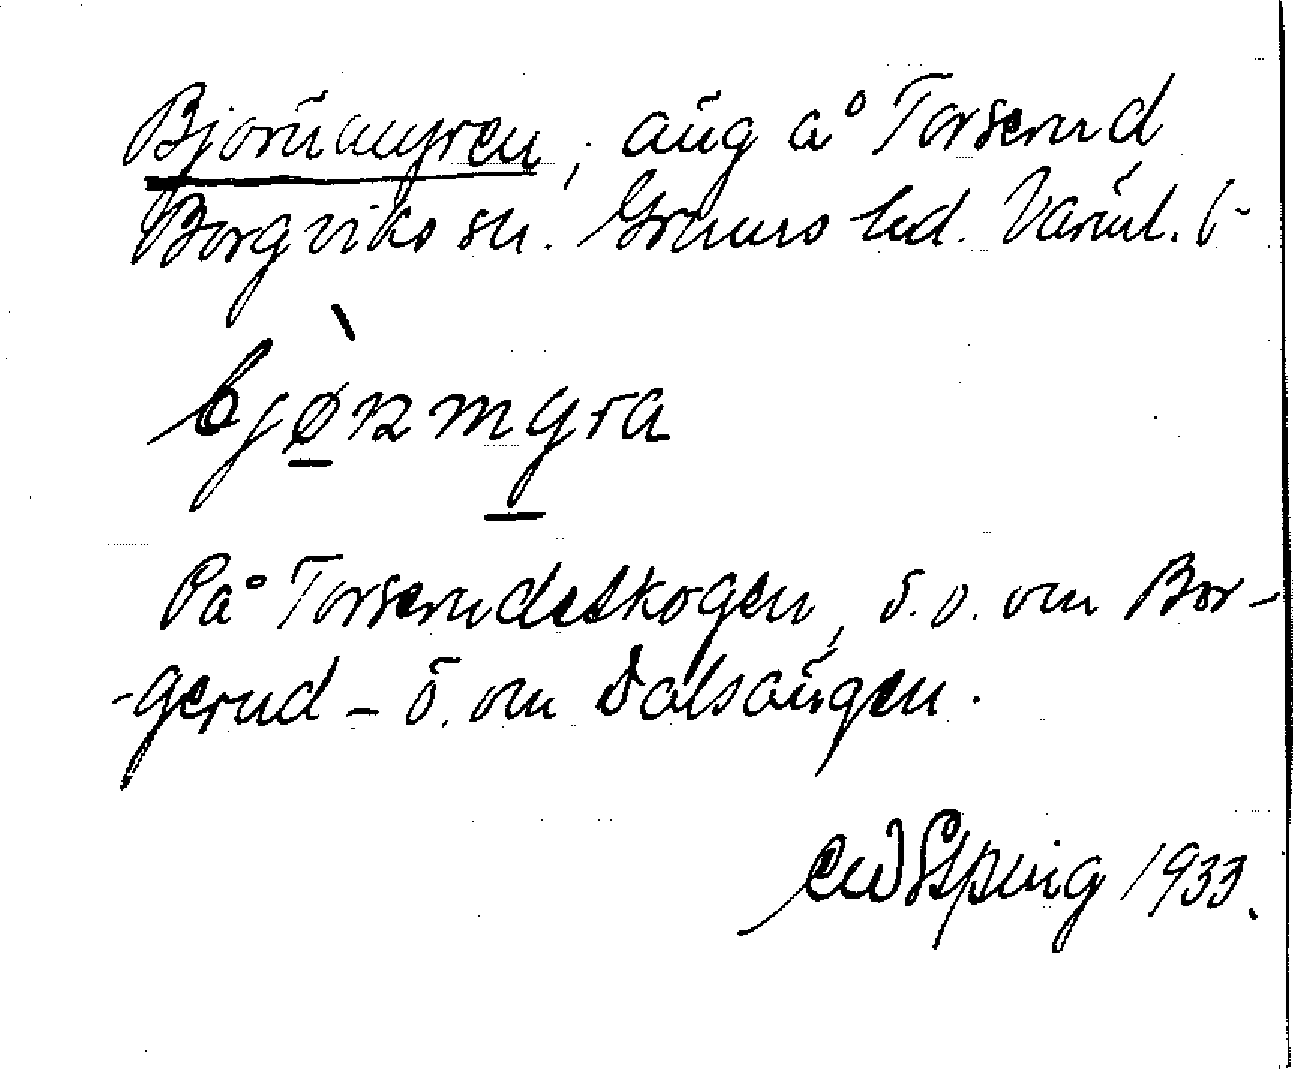 Björnmyren, äng å Torserud
Borgviks sn. Grums hd. Värml.
bjø̀rnmyra
På Torserudsskogen, s.o. om Bor-
-gerud - ö. om Dalsängen.
1933.